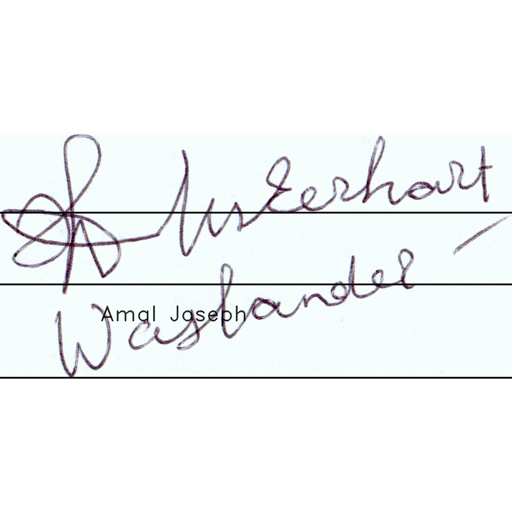 Usterhart -
Waslander
Amal Joseph